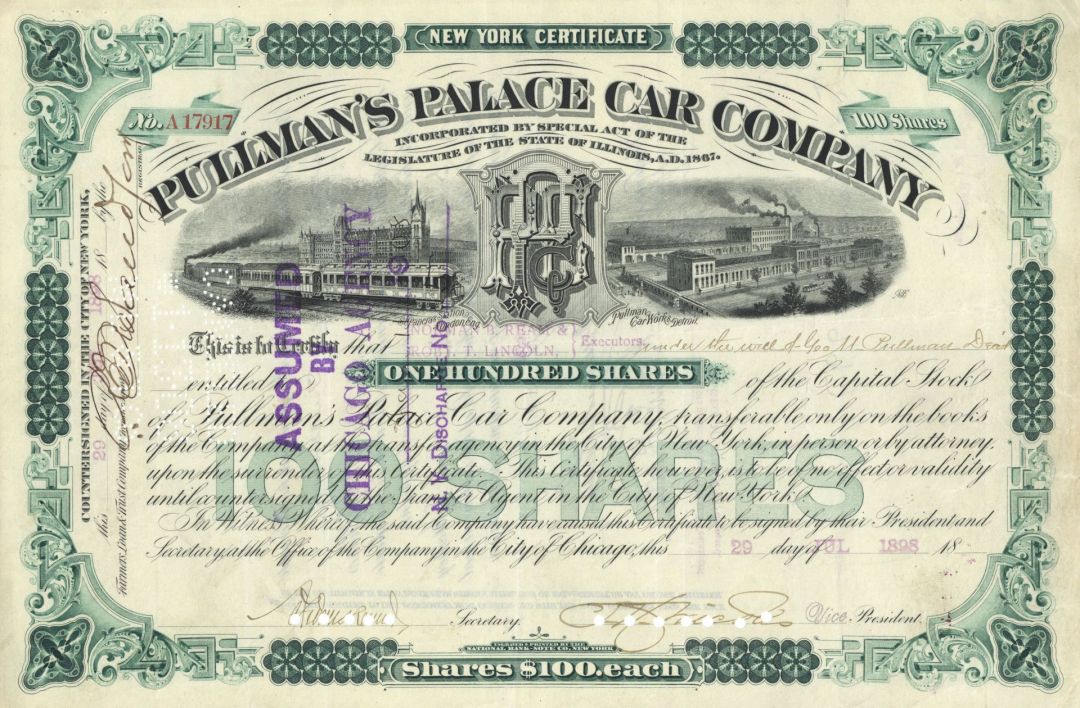 NEW YORK CERTIFICATE
No. A17917
100 Shares
PULLMAN'S PALACE CAR COMPANY
INCORPORATED BY SPECIAL ACT OF THE
LEGISLATURE OF THE STATE OF ILLINOIS, A.D. 1867.
COUNTERSIGNED IN THE CITY OF NEW YORK,
this 29 day of 1898 18 by the
Farmers Loan & Trust Company
Pullman
Car Works, Detroit.
This is to Certify that NORMAN B. REAM & ROB. T. LINCOLN, Executors, under the will of Geo M Pullman
entitled ONE HUNDRED SHARES of the Capital Stock
of Pullman's Palace Car Company, transferable only on the books
of the Company at the transfer agency in the City of New York, in person or by attorney
upon the surrender of this Certificate. This Certificate, however, is to be of no effect or validity
until countersigned by the Transfer Agent in the City of New York.
100 SHARES
In Witness Whereof, the said Company have caused this Certificate to be signed by their President and
Secretary, at the Office of the Company in the City of Chicago, this 29 day of JUL 1898 18
Secretary.
Vice President.
ASSUMED
BY
CHICAGO AGENCY
N.Y. DISCHARGE NO.
NATIONAL BANK-NOTE CO. NEW YORK
Shares $100. each